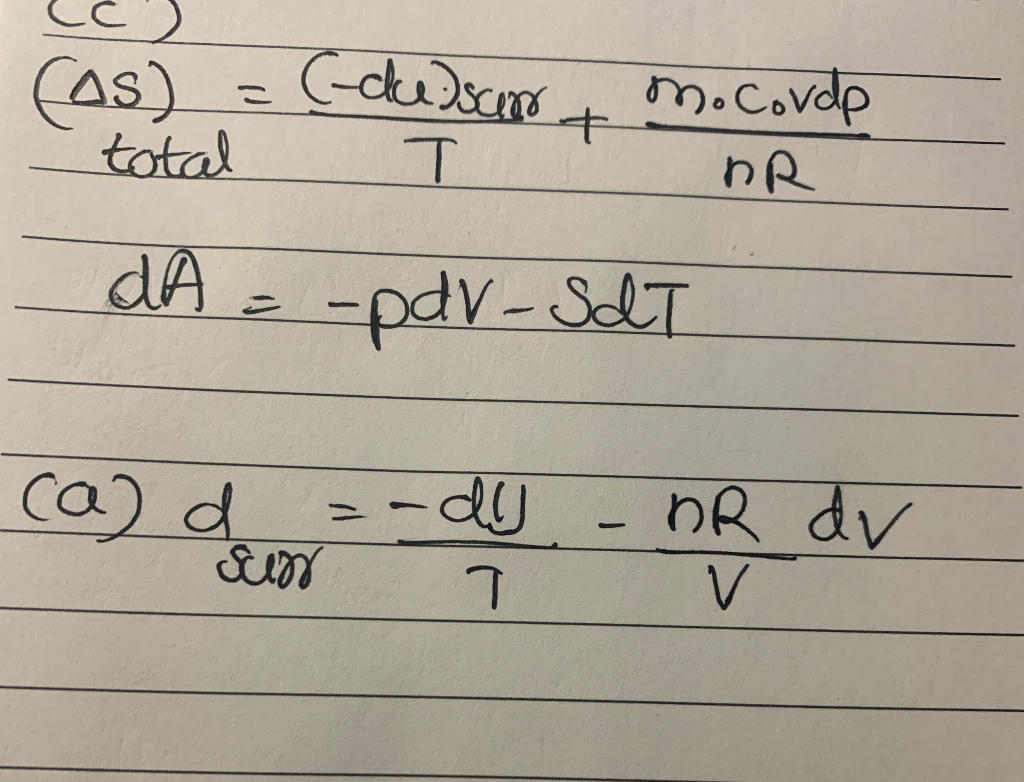 (c)
(ΔS)total = (-du)surr/T + m.C.vdp/nR
dA = -pdV - SdT
(a) dsurr = -dU/T - nR/V dV